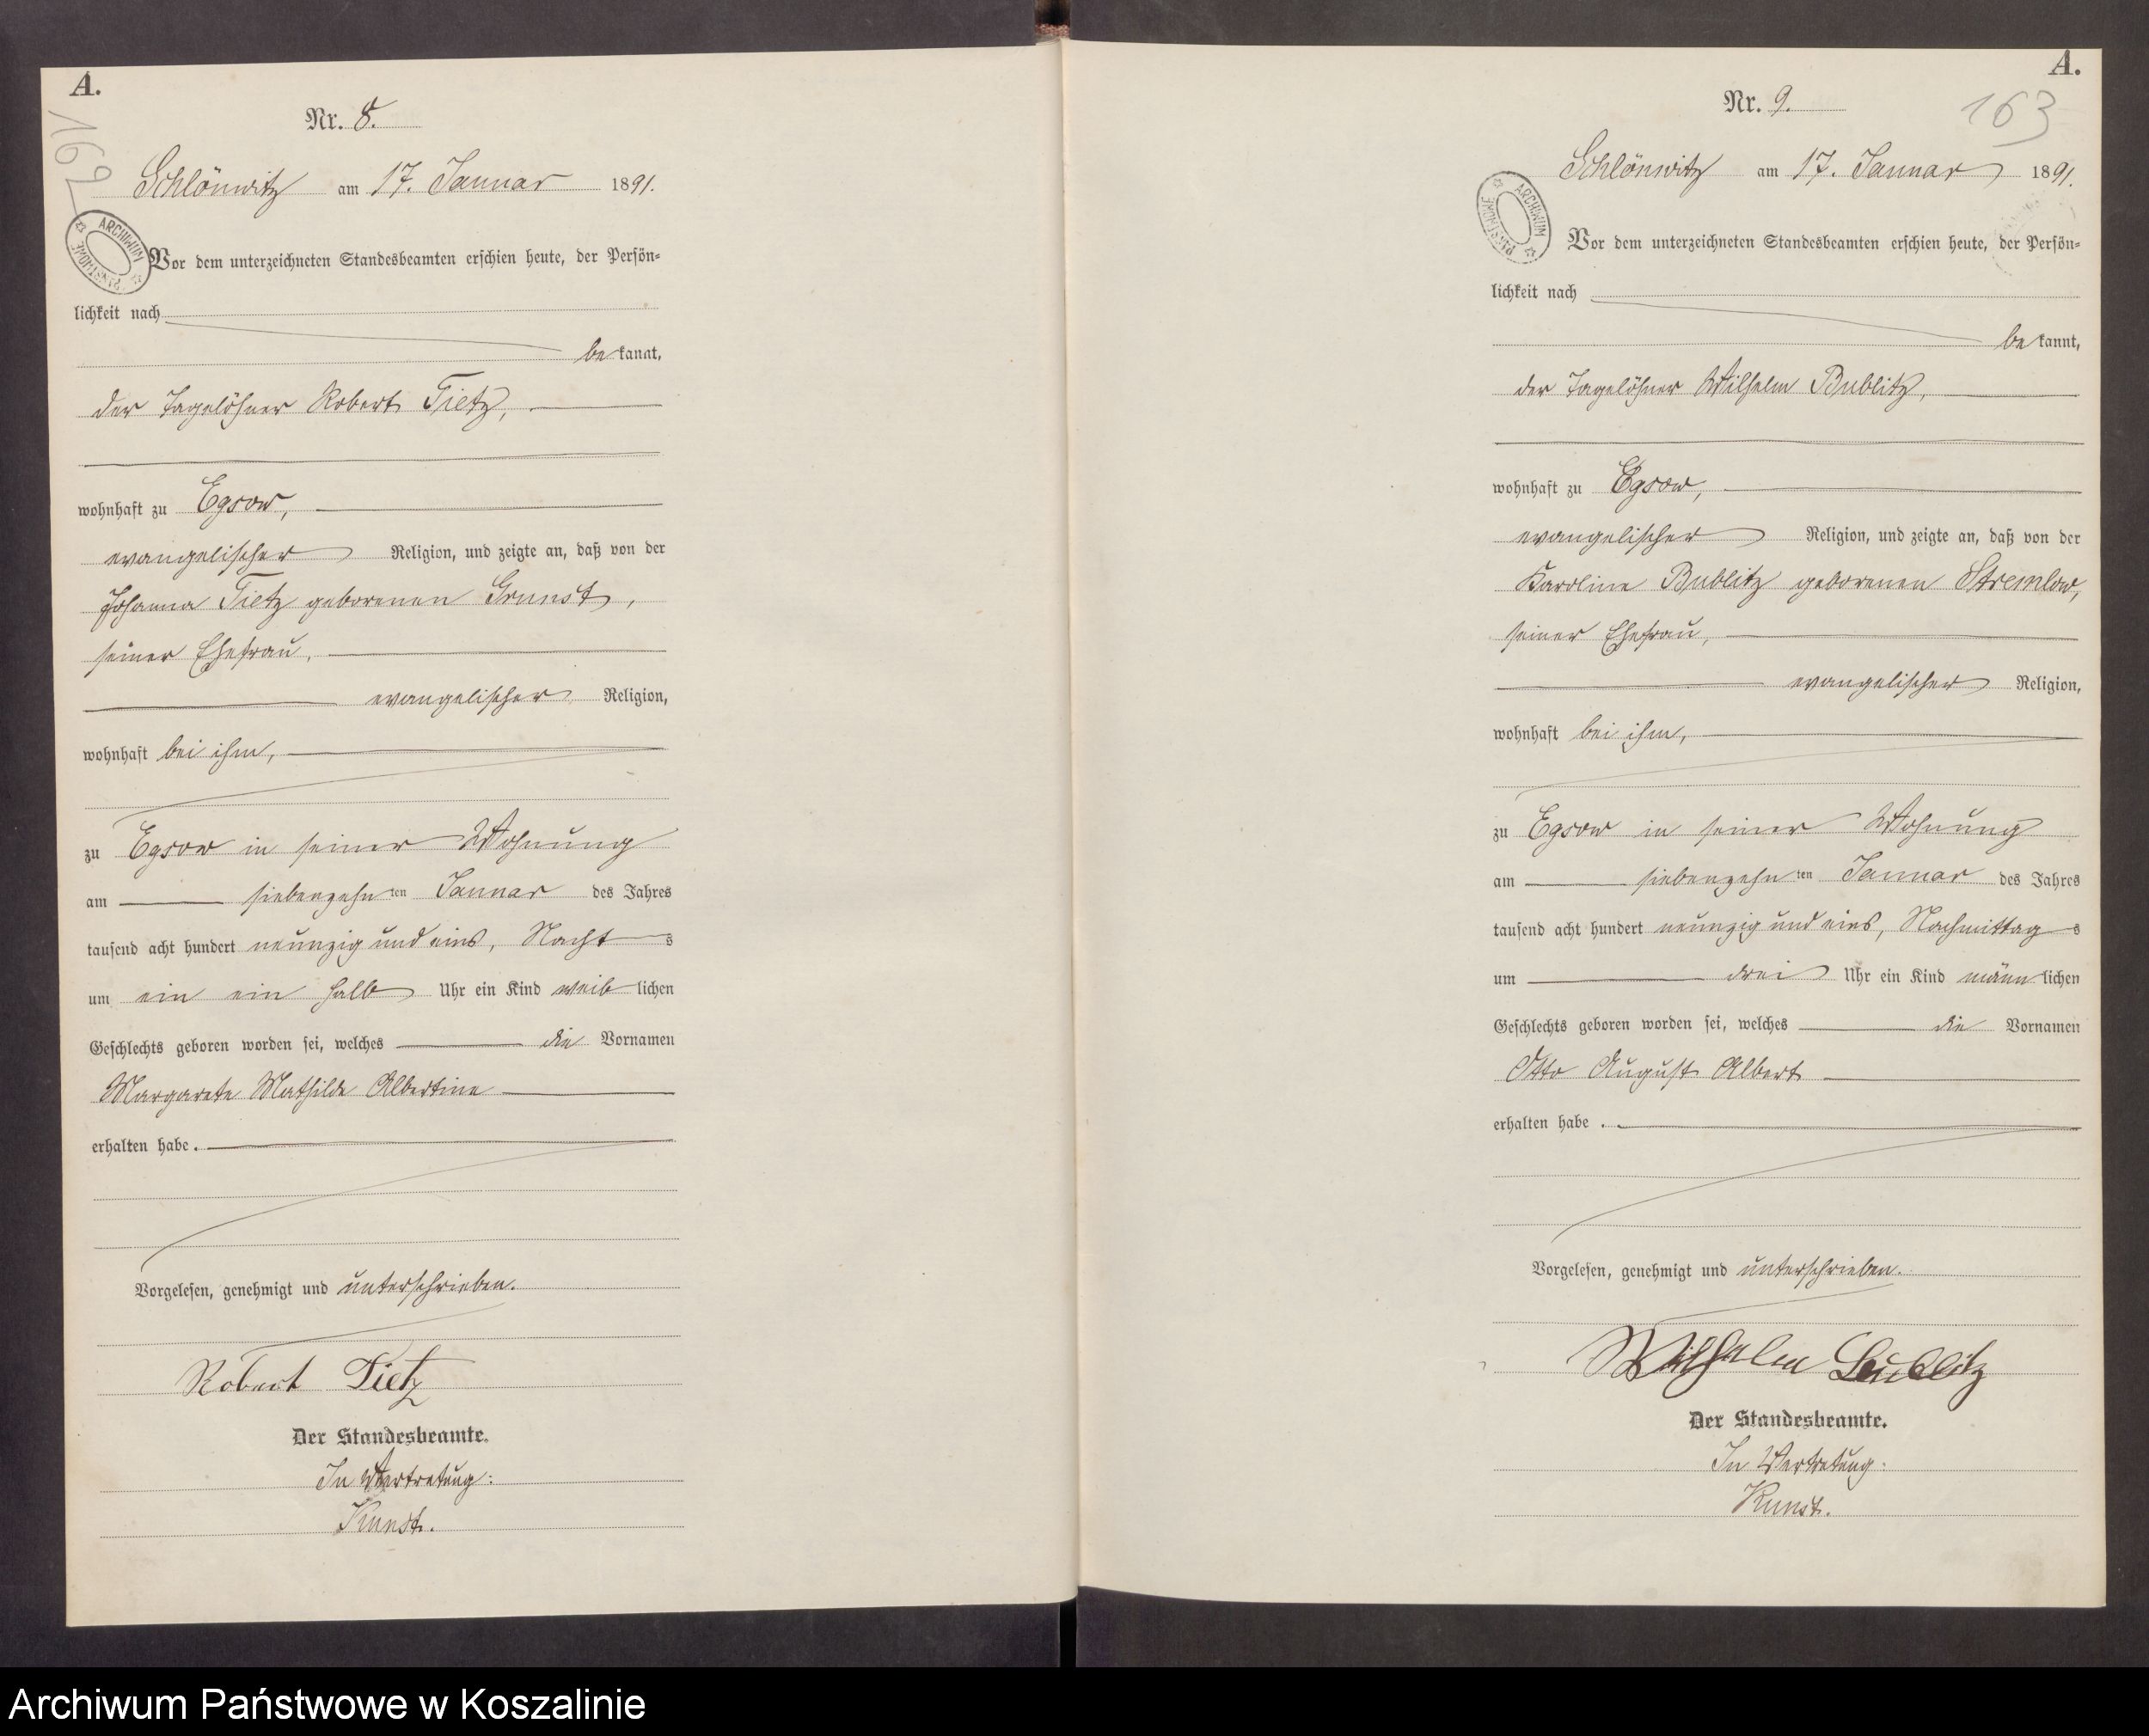 A.
Nr. 8.
162
Schlönwitz am 17. Januar 1891.
ARCHIWUM PAŃSTWOWE
Vor dem unterzeichneten Standesbeamten erschien heute, der Persön=
lichkeit nach
be kannt,
der Tagelöhner Robert Tietz,
wohnhaft zu Egsow,
evangelischer Religion, und zeigte an, daß von der
Johanna Tietz geborenen Grunst,
seiner Ehefrau,
evangelischer Religion,
wohnhaft bei ihm,
zu Egsow in seiner Wohnung
am siebenzehn ten Januar des Jahres
tausend acht hundert neunzig und eins, Nacht s
um ein ein halb Uhr ein Kind weib lichen
Geschlechts geboren worden sei, welches die Vornamen
Margarete Mathilde Albertine
erhalten habe.
Vorgelesen, genehmigt und unterschrieben.
Robert Tietz
Der Standesbeamte.
In Vertretung:
Kunst.
A.
Nr. 9.
163
Schlönwitz am 17. Januar 1891.
ARCHIWUM PAŃSTWOWE
Vor dem unterzeichneten Standesbeamten erschien heute, der Persön=
lichkeit nach
be kannt,
der Tagelöhner Wilhelm Bublitz,
wohnhaft zu Egsow,
evangelischer Religion, und zeigte an, daß von der
Karoline Bublitz geborenen Stremlow,
seiner Ehefrau,
evangelischer Religion,
wohnhaft bei ihm,
zu Egsow in seiner Wohnung
am siebenzehn ten Januar des Jahres
tausend acht hundert neunzig und eins, Nachmittag s
um drei Uhr ein Kind männ lichen
Geschlechts geboren worden sei, welches die Vornamen
Otto August Albert
erhalten habe.
Vorgelesen, genehmigt und unterschrieben.
Wilhelm Bublitz
Der Standesbeamte.
In Vertretung:
Kunst.
Archiwum Państwowe w Koszalinie